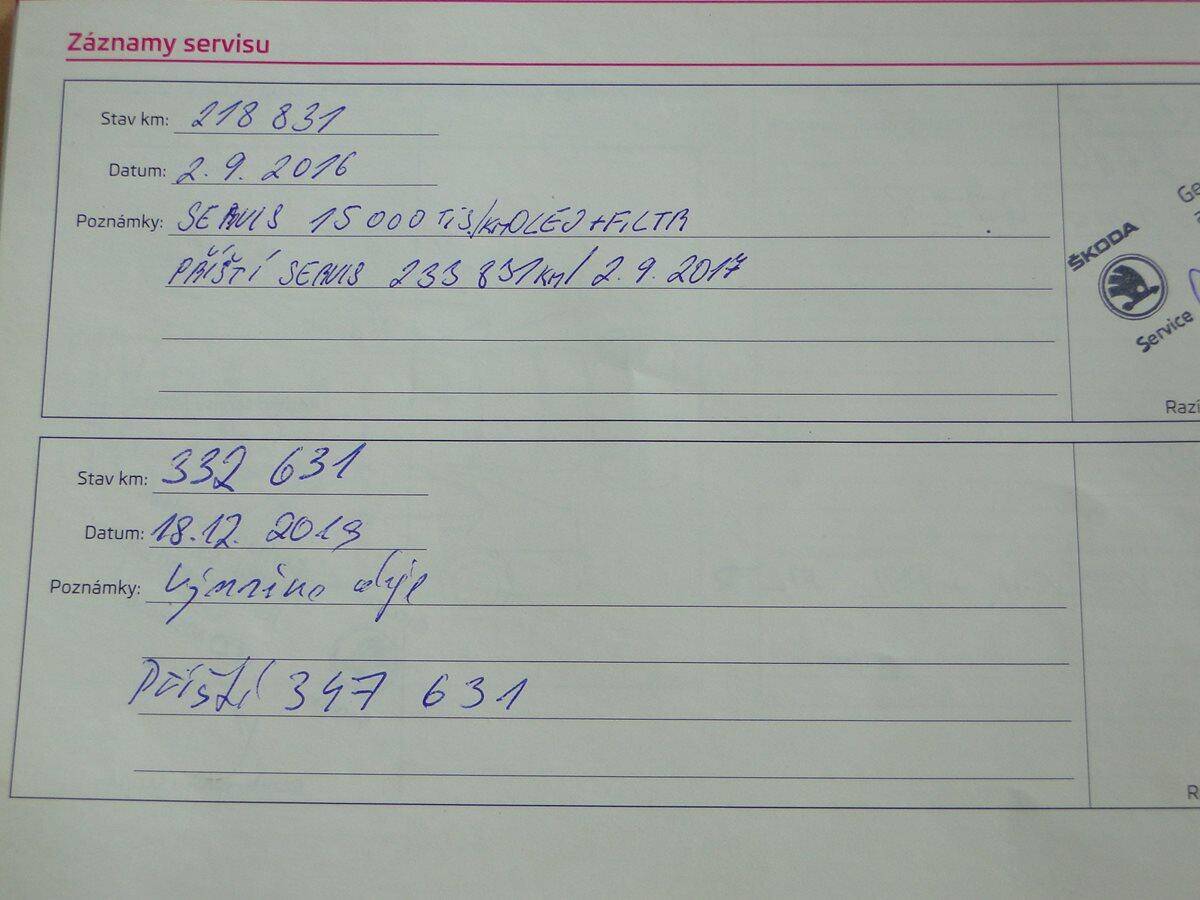 Záznamy servisu
Stav km: 218 831
Datum: 2. 9. 2016
Poznámky: SERVIS 15 000 Tis./km OLEJ+FiLTR
PŘÍŠTÍ SERVIS 233 831 km/ 2. 9. 2017
ŠKODA
Service
Ge
Razí
Stav km: 332 631
Datum: 18.12. 2019
Poznámky: Výměna oleje
Příští 347 631
R